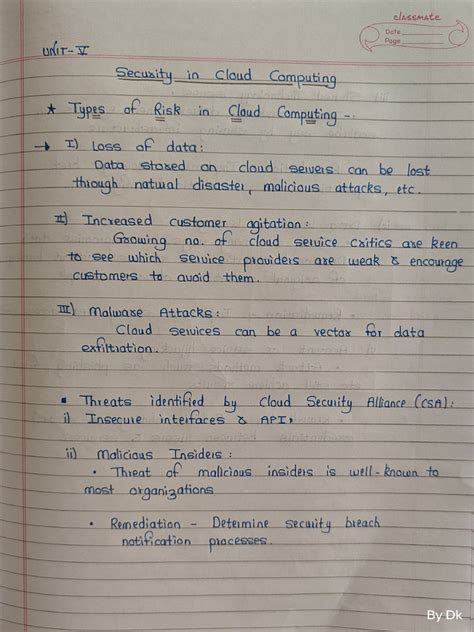 classmate
Date
Page
UNIT-V
Security in Cloud Computing
* Types of Risk in Cloud Computing -
→ I) Loss of data:
Data stored on cloud servers can be lost
through natural disaster, malicious attacks, etc.
II) Increased customer agitation:
Growing no. of cloud service critics are keen
to see which service providers are weak & encourage
customers to avoid them.
III) Malware Attacks:
Cloud services can be a vector for data
exfiltration.
▪ Threats identified by Cloud Security Alliance (CSA):
i) Insecure interfaces & API's
ii) Malicious Insiders:
• Threat of malicious insiders is well-known to
most organizations
• Remediation - Determine security breach
notification processes.
By Dk